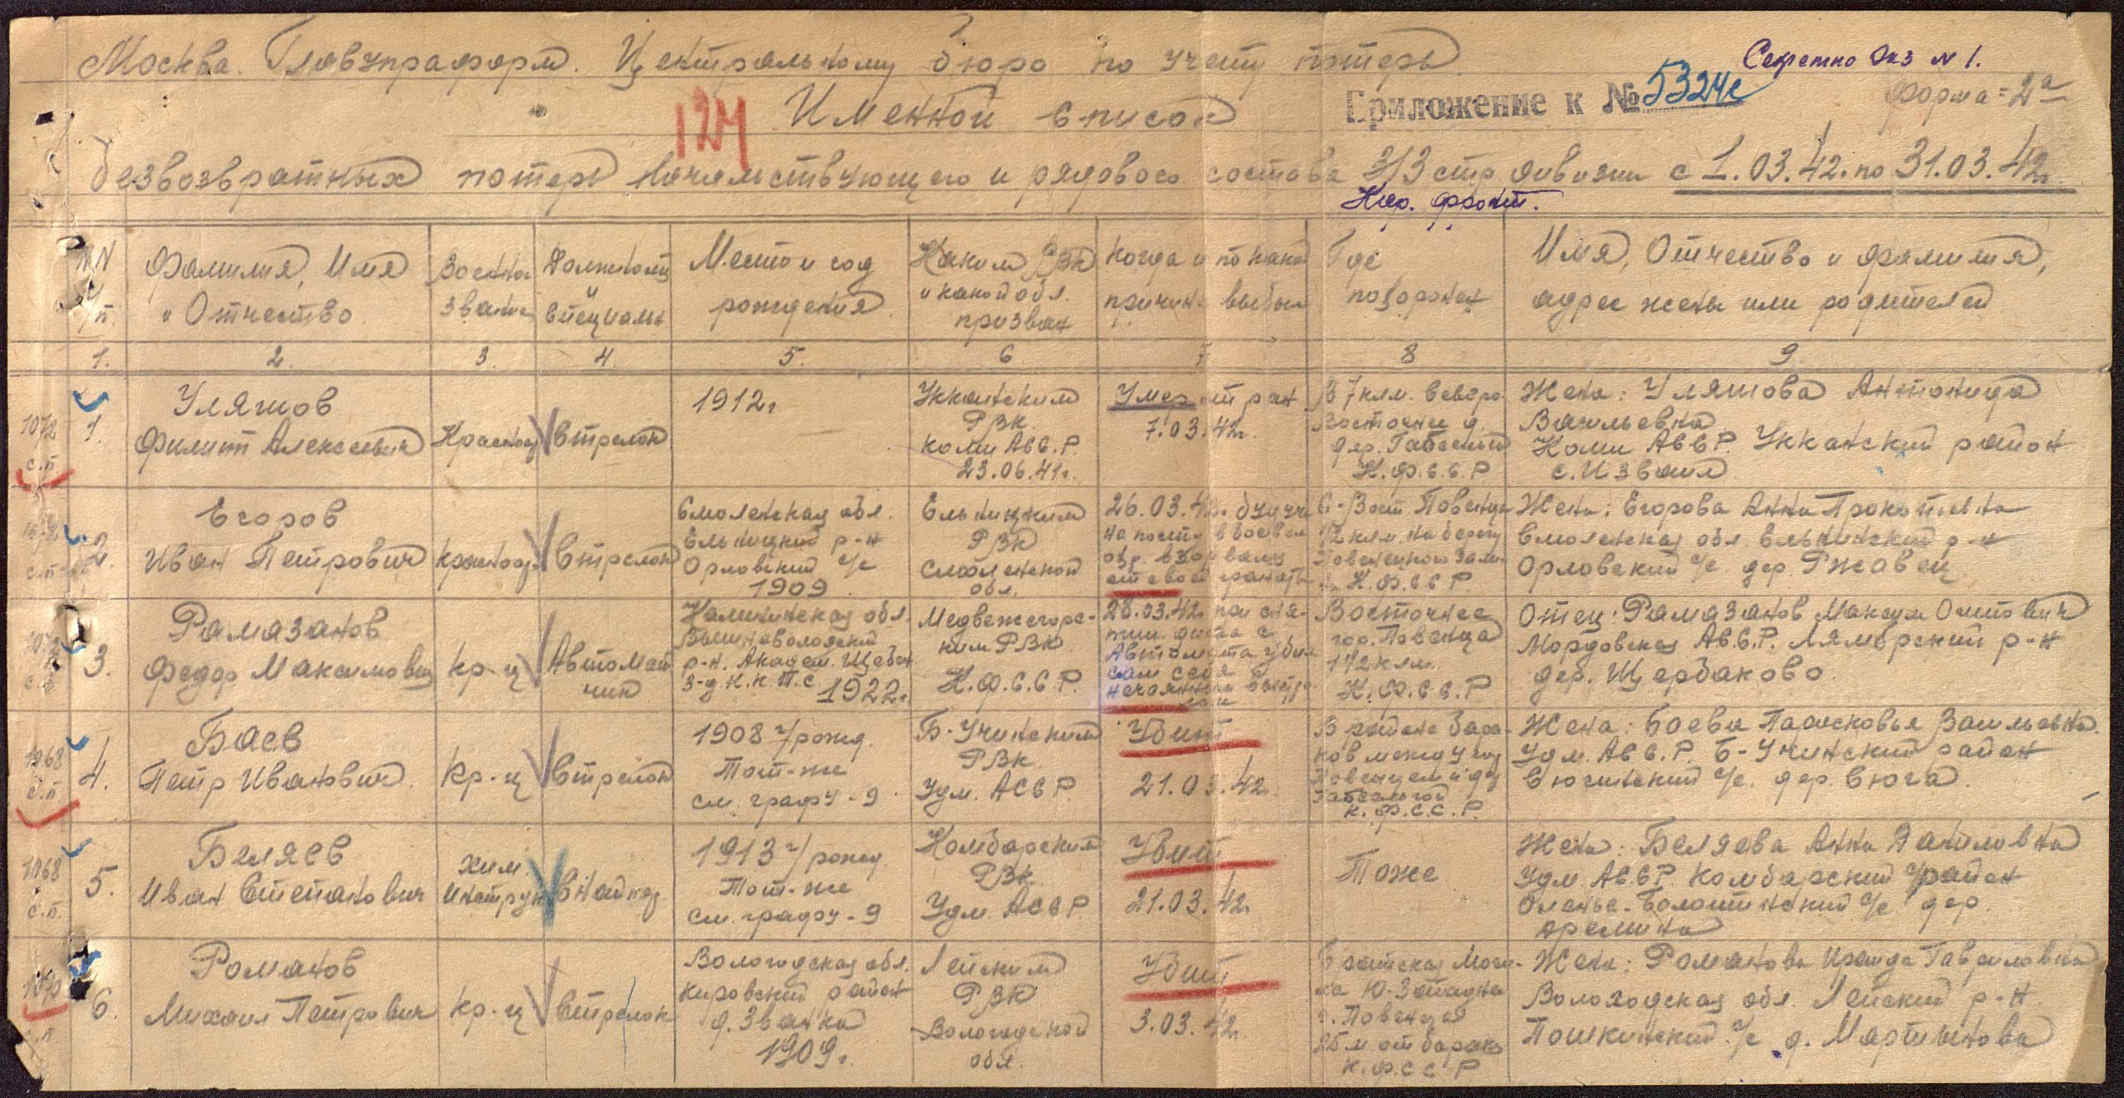 Москва. Главупраформ. Центральному бюро по учету потерь
Секретно Экз N 1.
Приложение к № 5324с
Форма = 2а
124
Именной список
безвозвратных потерь начальствующего и рядового состава 313 стр. дивизии с 1.03.42. по 31.03.42г.
Кар. фронт.
NN п/п.
Фамилия, Имя и Отчество
Воен. звание
Должность и специальн
Место и год рождения
Каким РВК и какой обл. призван
Когда и по какой причине выбыл
Где похоронен
Имя, Отчество и фамилия, адрес жены или родителей
1. 2. 3. 4. 5. 6 7 8 9
1072 с.п
1.
Уляшов Филипп Алексеевич
Красноар
Стрелок
1912г
РВК Коми АССР. 23.06.41г.
Умер от ран 7.03.42г.
В 7 клм. северо Восточнее д. К.Ф.С.С.Р
Жена: Уляшова Антонида Васильевна Коми АССР. район с. Изваиля
2.
Егоров Иван Петрович
Красноар
Стрелок
Смоленская обл. Ельницкий р-н Орловский с/с 1909
Ельницким РВК Смоленской обл.
26.03.42г. будучи на посту в боевом взорвался от своей гранаты
С-Вост Повенца 12 клм. на берегу К.Ф.С.С.Р
Жена: Егорова Анна Прокопьевна Смоленская обл. Ельнинский р-н Орловский с/с дер. Ржавец
1072 с.п
3.
Рамазанов Федор Максимович
Кр-ц
Автоматчик
Калининская обл. Вышневолоцкий р-н. Академ. 1922г.
Медвежегорским РВК К.Ф.С.С.Р.
28.03.42г. при автомата убил сам себя нечаянным выстрелом
Восточнее гор. Повенца 12 клм. К.Ф.С.С.Р
Отец: Рамазанов Максим Мордовская АССР. Лямбирский р-н дер. Щербаково.
1068 с.п
4.
Баев Петр Иванович.
Кр-ц
Стрелок
1908 г/рожд. Тот-же см. графу-9
Б-Учинским РВК Удм. АССР
Убит 21.03.42г.
В районе бараков между гор Повенцем и дер К.Ф.С.С.Р.
Жена: Баева Парасковья Васильевна. Удм. АССР. Б-Учинский район Сюгинский с/с. дер. Сюга
1068 с.п.
5.
Беляев Иван Степанович
хим. Инструк
Снайпер
1913 г/рожд Тот-же см. графу-9
Камбарским РВК Удм. АССР
Убит 21.03.42г.
Тоже
Жена: Беляева Анна Даниловна Удм. АССР. Камбарский район с/с дер.
с.п
6.
Романов Михаил Петрович
Кр-ц
Стрелок
Вологодская обл. Кировский район д. Званка 1909г.
РВК Вологодской обл.
Убит 3.03.42г.
Братская Могила Ю-Западнее г. Повенца 25 м от барака К.Ф.С.С.Р
Жена: Романова Гавриловна Вологодская обл. р-н. с/с д. Мартынова